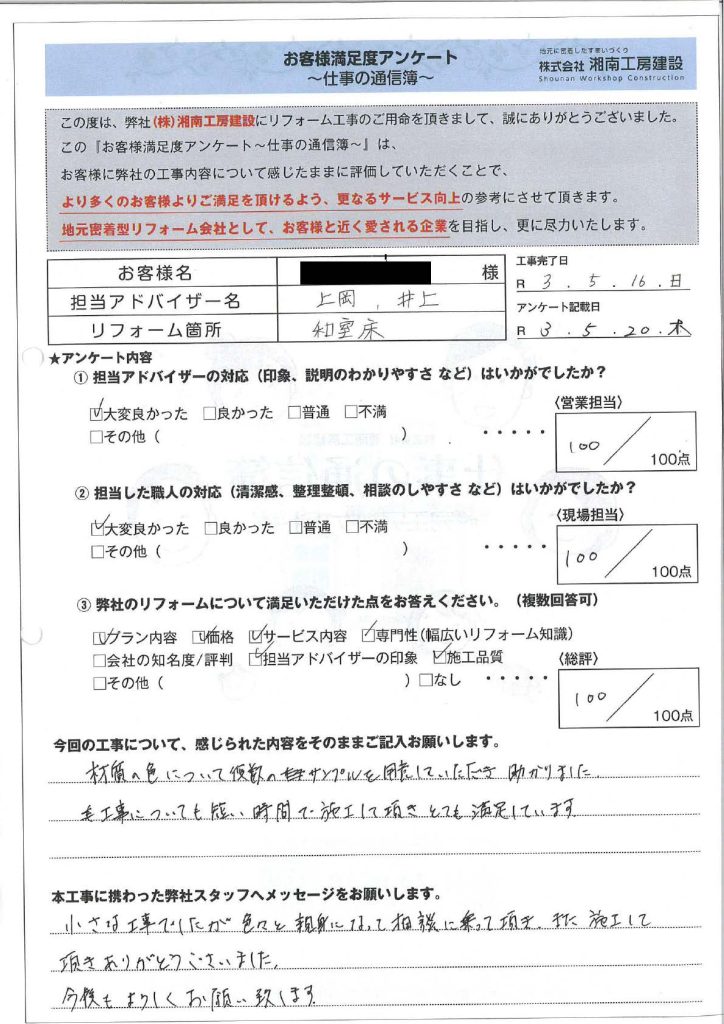 お客様満足度アンケート
～仕事の通信簿～
地元に密着したすまいづくり
株式会社 湘南工房建設
Shounan Workshop Construction
この度は、弊社(株)湘南工房建設にリフォーム工事のご用命を頂きまして、誠にありがとうございました。
この『お客様満足度アンケート～仕事の通信簿～』は、
お客様に弊社の工事内容について感じたままに評価していただくことで、
より多くのお客様よりご満足を頂けるよう、更なるサービス向上の参考にさせて頂きます。
地元密着型リフォーム会社として、お客様と近く愛される企業を目指し、更に尽力いたします。
お客様名 様
担当アドバイザー名 上岡、井上
リフォーム箇所 和室床
工事完了日
R 3 . 5 . 16 . 日
アンケート記載日
R 3 . 5 . 20 . 木
★アンケート内容
① 担当アドバイザーの対応（印象、説明のわかりやすさ など）はいかがでしたか？
☑大変良かった □良かった □普通 □不満
□その他（ ） ・・・・・
〈営業担当〉
100 / 100点
② 担当した職人の対応（清潔感、整理整頓、相談のしやすさ など）はいかがでしたか？
☑大変良かった □良かった □普通 □不満
□その他（ ） ・・・・・
〈現場担当〉
100 / 100点
③ 弊社のリフォームについて満足いただけた点をお答えください。（複数回答可）
☑プラン内容 ☑価格 ☑サービス内容 ☑専門性(幅広いリフォーム知識)
□会社の知名度/評判 ☑担当アドバイザーの印象 ☑施工品質
□その他（ ）□なし ・・・・・
〈総評〉
100 / 100点
今回の工事について、感じられた内容をそのままご記入お願いします。
材質の色について複数のサンプルを用意していただき 助かりました。
工事についても短い時間で施工して頂き とても満足しています
本工事に携わった弊社スタッフへメッセージをお願いします。
小さな工事でしたが 色々と親身になって相談に乗って頂き、また 施工して
頂きありがとうございました。
今後もよろしくお願い致します